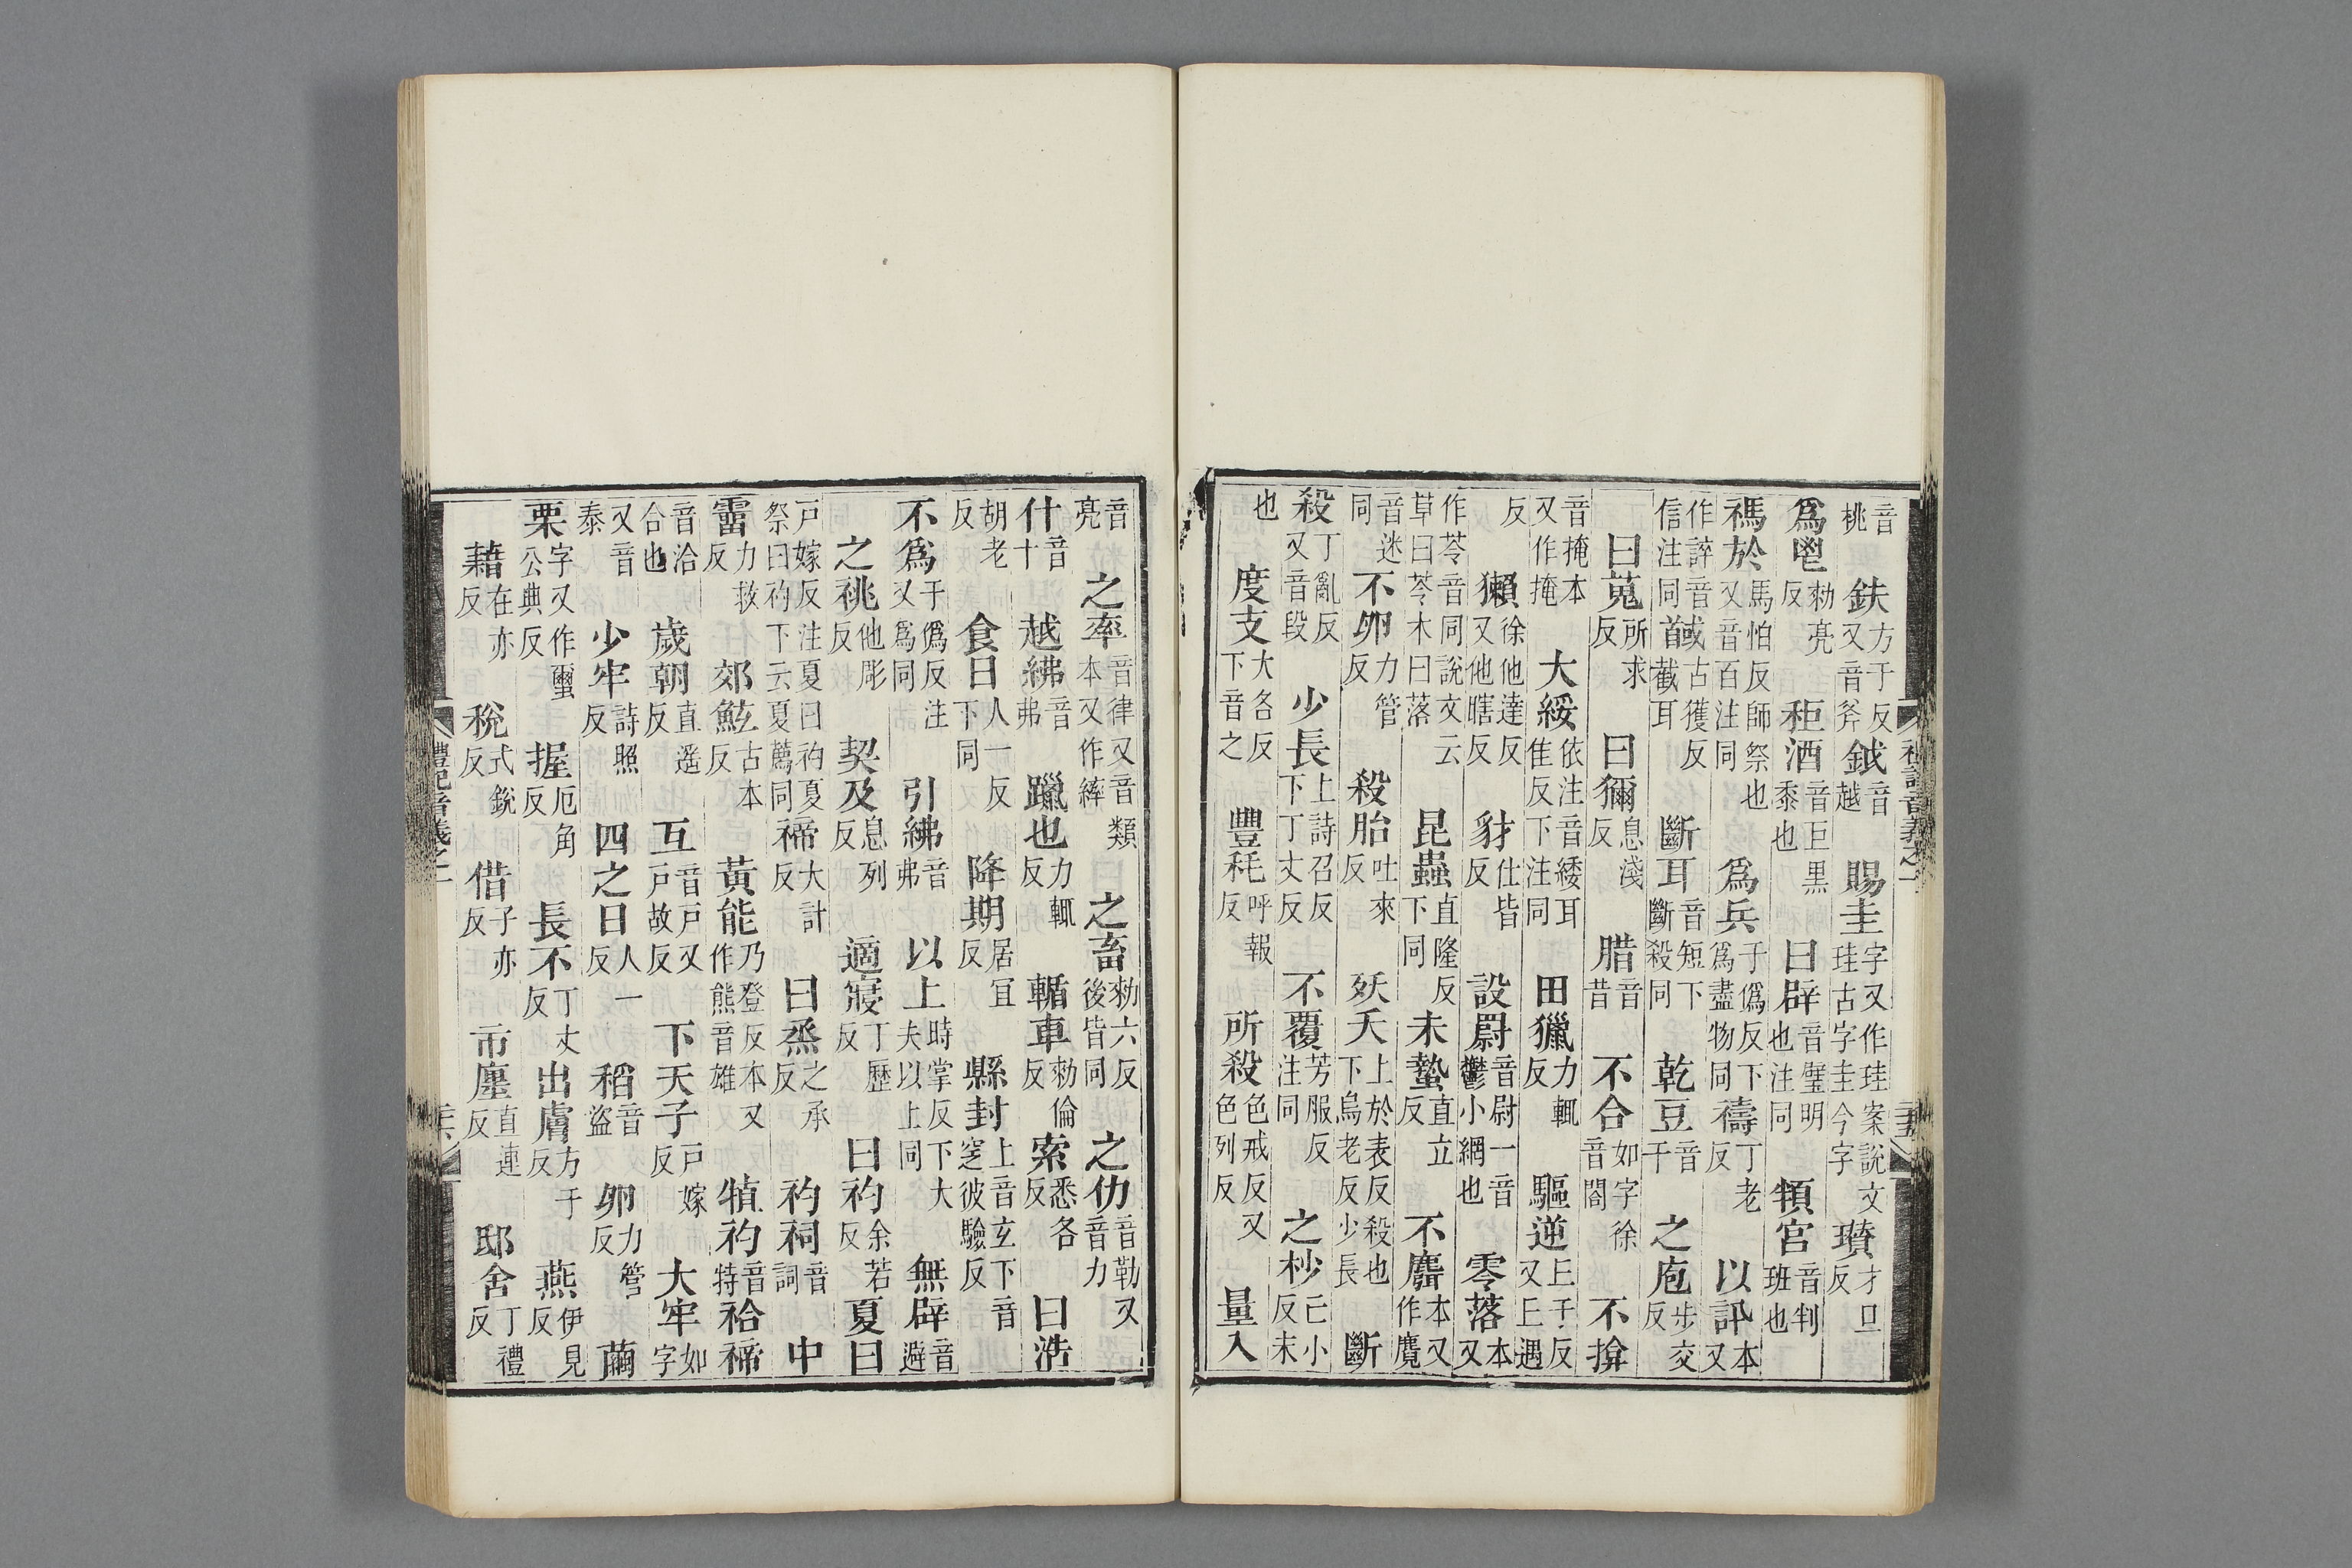 音桃 鈇方于反又音斧 鉞音越 賜圭字又作珪案說文珪古字圭今字 瓚才旦反
爲鬯勑亮反 秬酒音巨黑黍也 曰辟音璧明也注同 頖宫音判班也
禡於馬怕反師祭也又音百注同 爲兵于僞反下爲盡物同 禱丁老反 以訊本又
作誶音信注同 馘古獲反截耳 斷耳音短下斷殺同 乾豆音干 之庖步交反
曰蒐所求反 曰獮息淺反 腊音昔 不合如字徐音閤 不揜
音掩本又作掩 大綏依注音緌耳隹反下注同 田獵力輒反 驅逆丘于反又丘遇
反 獺徐他達反又他瞎反 豺仕皆反 設罻音尉一音鬱小網也 零落本又
作苓音同說文云草曰苓木曰落 昆蟲直隆反下同 未蟄直立反 不麛本又作麑
音迷同 不卵力管反 殺胎吐來反 殀夭上於表反殺也下烏老反少長 斷
殺丁亂反又音段 少長上詩召反下丁丈反 不覆芳服反注同 之杪亡小反末
也 度支大各反下音之 豐耗呼報反 所殺色戒反又色列反 量入
音亮 之率音律又音類本又作繂 之畜勑六反後皆同 之仂音勒又音力
什音十 越紼音弗 躐也力輒反 輴車勑倫反 索悉各反 曰浩
胡老反 食日人一反下同 降期居宜反 縣封上音玄下音窆彼驗反
不爲于僞反注又爲同 引紼音弗 以上時掌反下大夫以上同 無辟音避
之祧他彫反 契及息列反 適寢丁歷反 曰礿余若反 夏曰
戸嫁反注夏曰礿夏祭曰礿下云夏薦同 禘大計反 曰烝之承反 礿祠音詞 中
霤力救反 郊鮌古本反 黃能乃登反本又作熊音雄 犆礿音特 祫禘
音洽合也 歲朝直遥反 互音戸又戸故反 下天子戸嫁反 大牢如字
又音泰 少牢詩照反 四之日人一反 稻音盜 卵力管反 繭
栗字又作璽公典反 握厄角反 長不丁丈反 出膚方于反 燕伊見反
藉在亦反 稅式銳反 借子亦反 市廛直連反 邸舍丁禮反
禮記音義之一